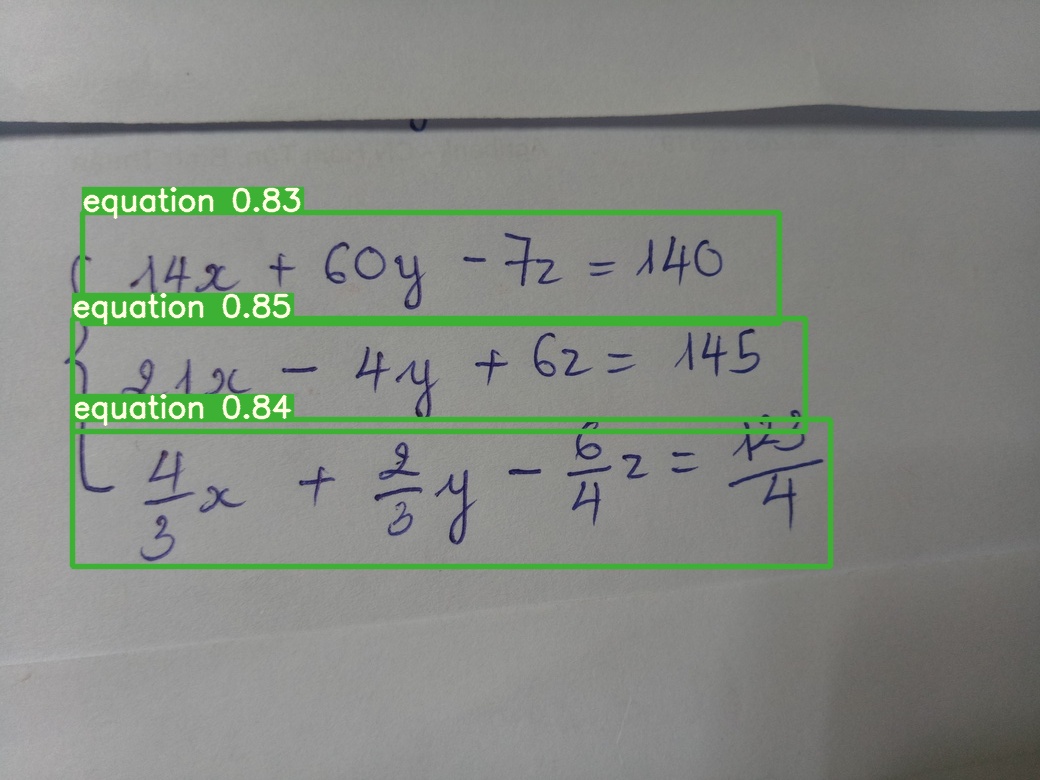 equation 0.83
14x + 60y - 7z = 140
equation 0.85
21x - 4y + 6z = 145
equation 0.84
4/3 x + 2/3 y - 6/4 z = 123/4